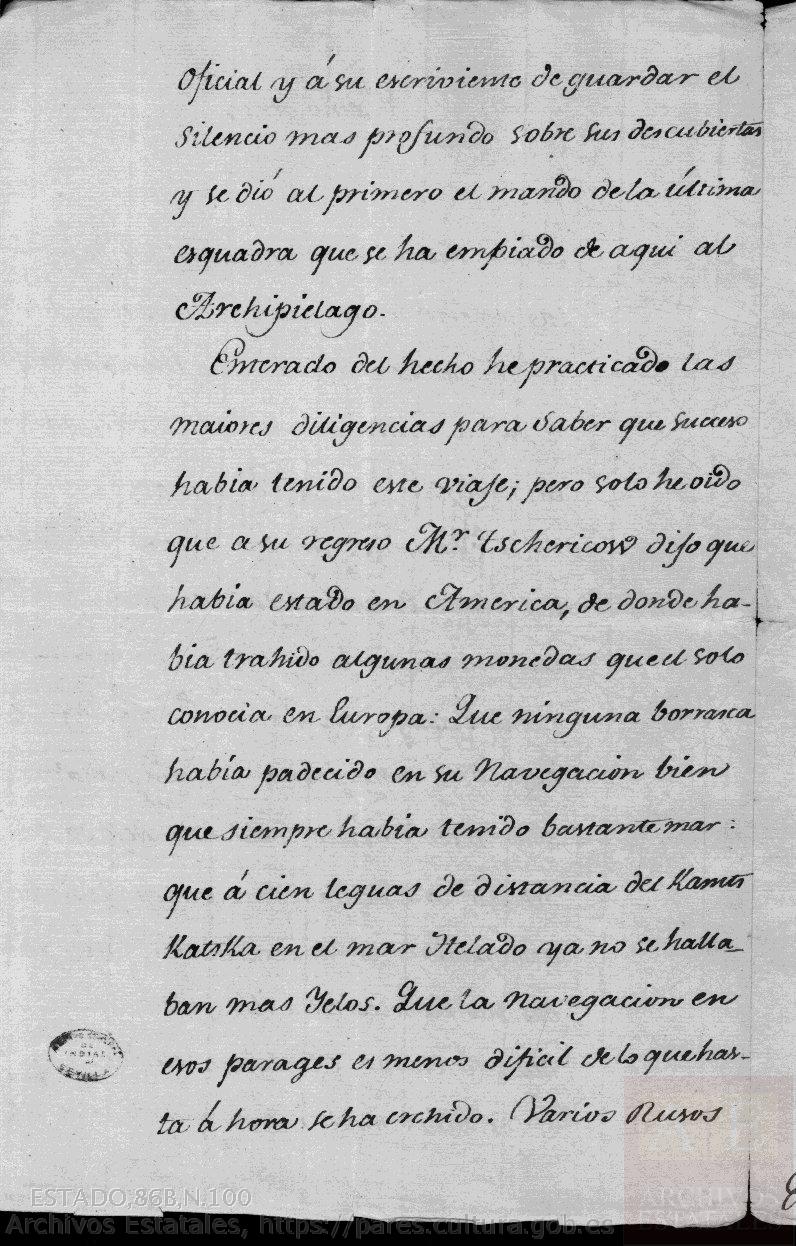 oficial y á su escriviente de guardar el
silencio mas profundo sobre sus descubiertas
y se dió al primero el mando de la última
esquadra que se ha empiado de aqui al
Archipielago.
Enterado del hecho he practicado las
maiores diligencias para saber que succeso
habia tenido este viaje; pero solo he oido
que a su regreso Mr. Tschericow dijo que
habia estado en America, de donde ha-
bia trahido algunas monedas que el solo
conocia en Europa: Que ninguna borrasca
había padecido en su Navegacion bien
que siempre habia tenido bastante mar:
que á cien leguas de distancia del Kamts
Katska en el mar Helado ya no se halla-
ban mas Yelos. Que la navegacion en
esos parages es menos dificil de lo que has-
ta á hora se ha crehido. Varios Rusos
INDIAS
SEVILLA
ARCHIVOS
ESTATALES
ESTADO,86B,N.100
Archivos Estatales, https://pares.cultura.gob.es